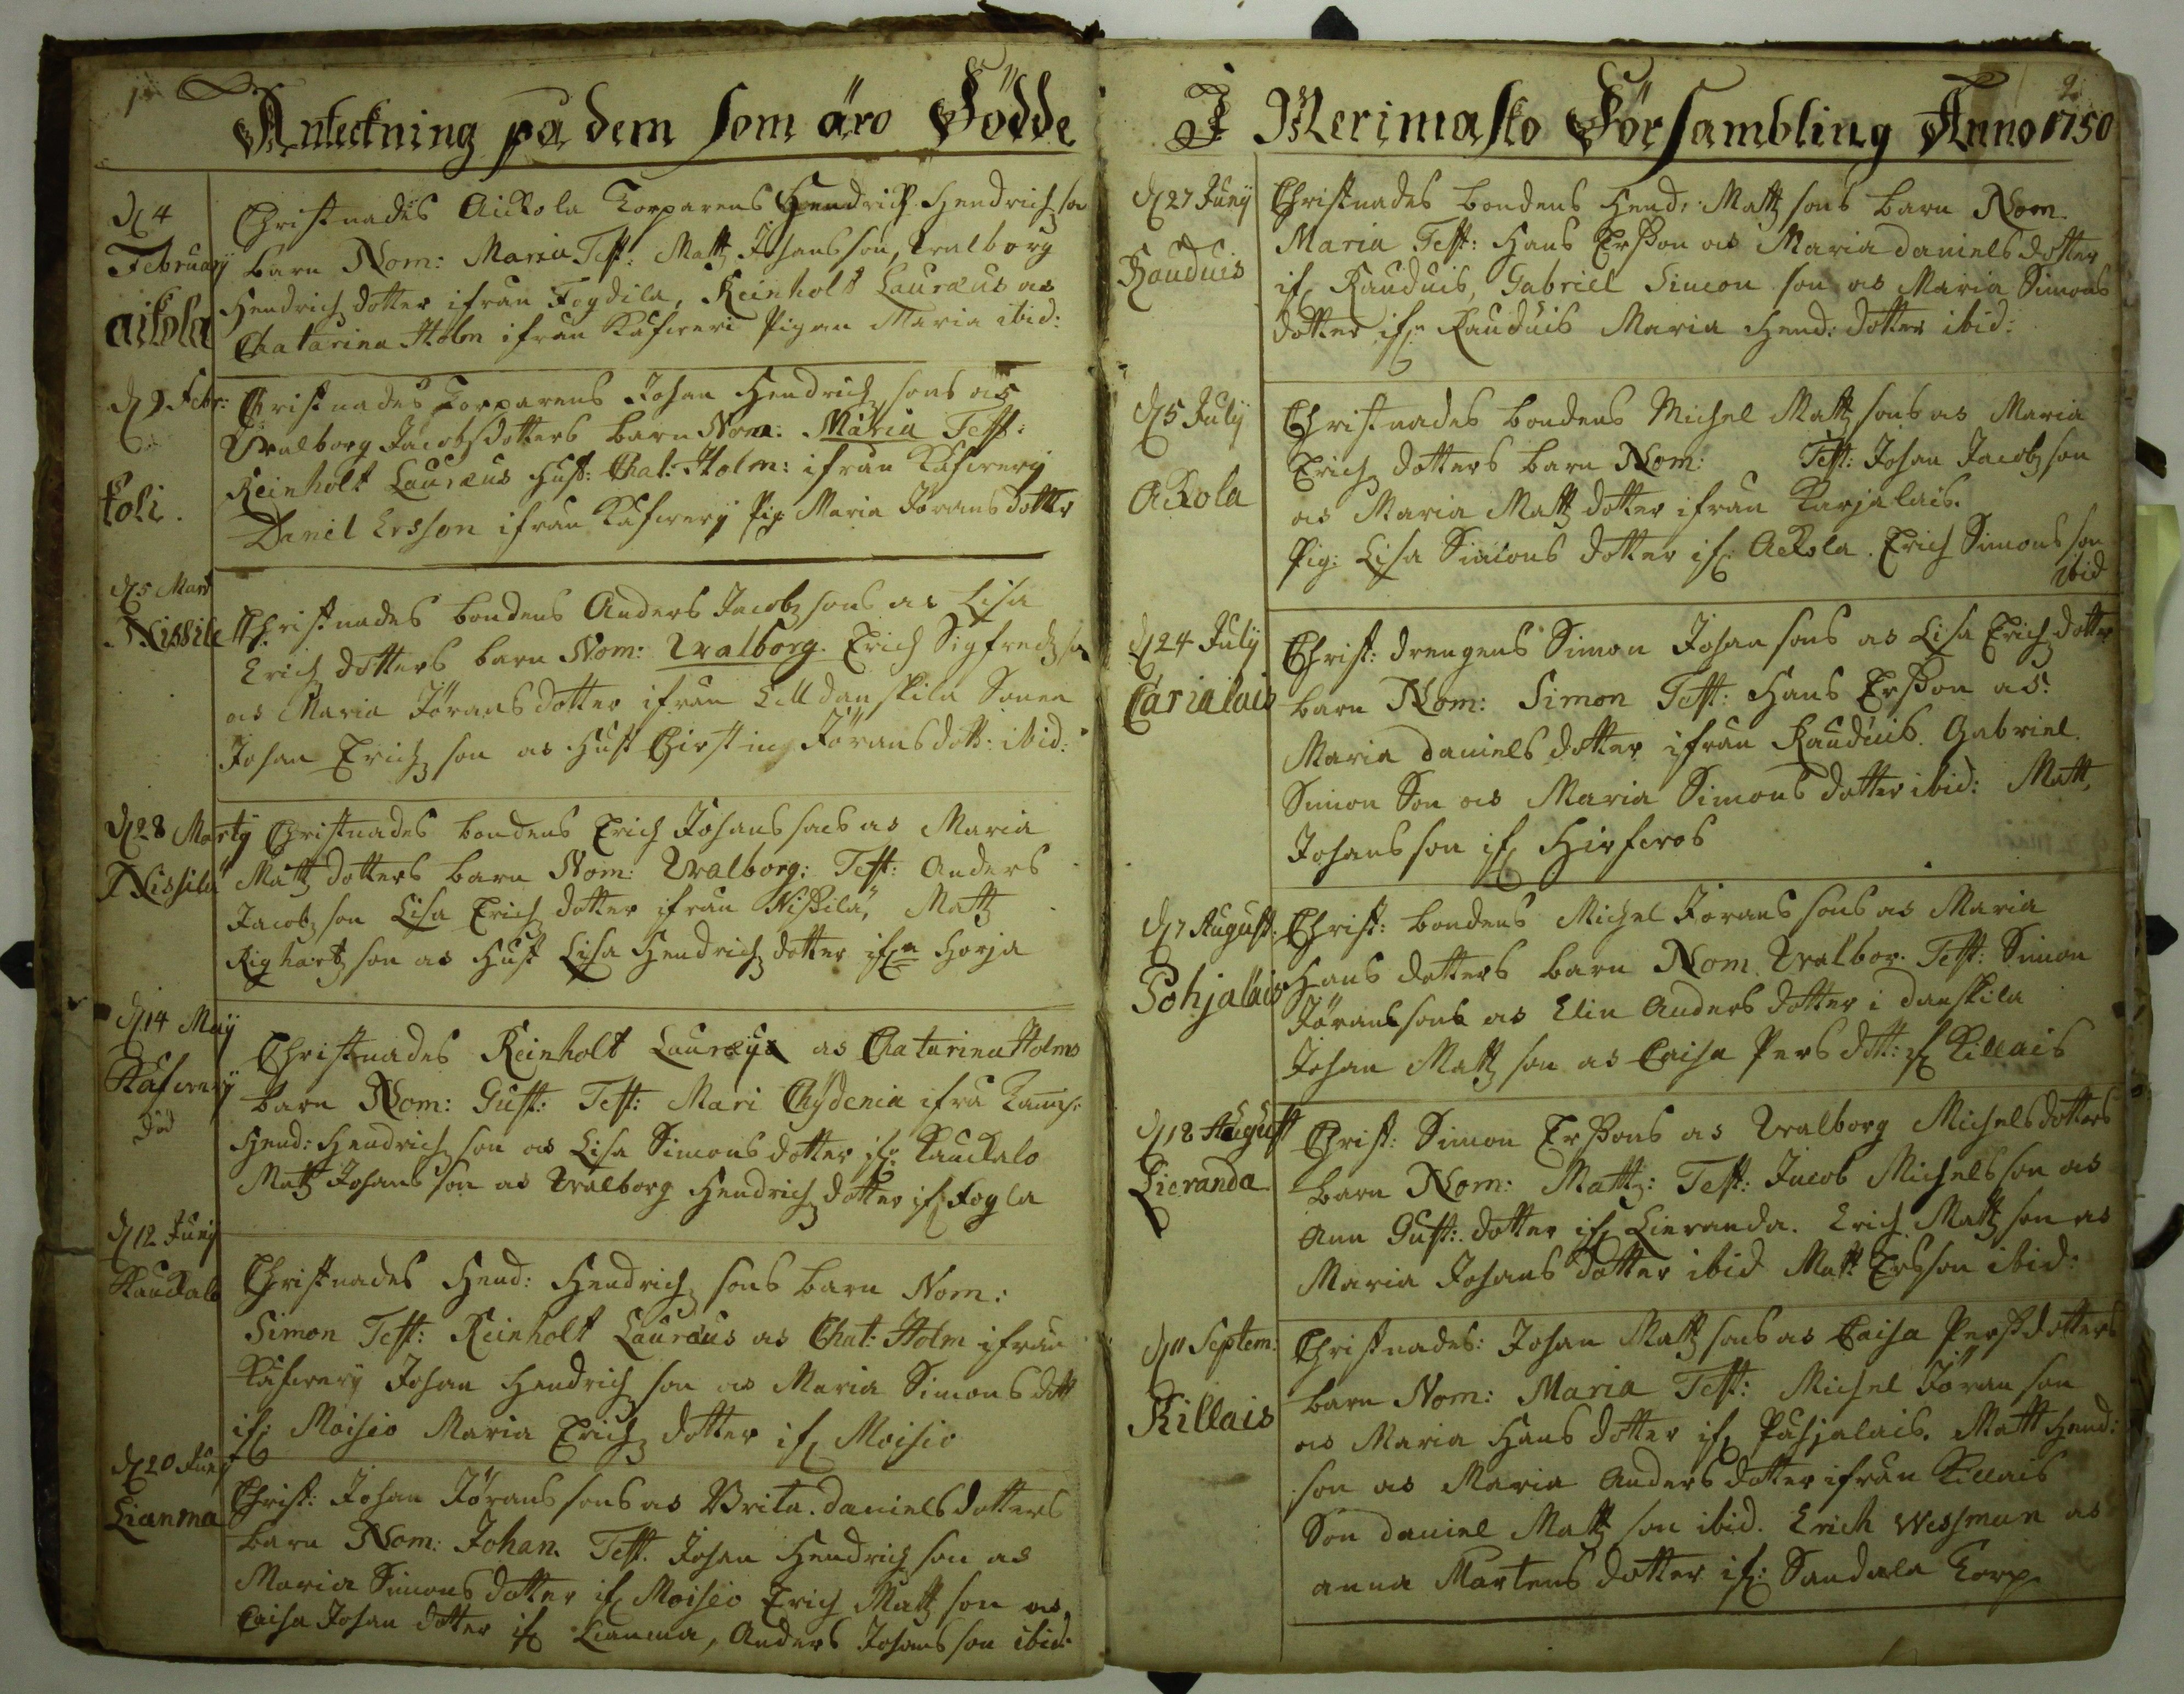 1.
Anteckning på dem som äro Födde
d. 4
February
aikola
Christnades Aickola Torparens Hendrich Hendrichs son
barn Nom: Maria Test: Matz Johansson, Walborg
Hendrichs dotter ifrån Fogdila, Reinholt Lauræus as
Chatarina Holm ifrån Kafweri Pigan Maria ibid:
d. 9 Febr:
Koli.
Christnades Torparens Johan Hendrichs sons as
Walborg Jacobsdotters barn Nom: Maria Test:
Reinholt Lauræus Hust: Chat: Holm: ifrån Kafwery
Daniel Ersson ifrån Kafwery Pig Maria Jöransdotter
d. 5 Mart
Nissile
Christnades bondens Anders Jacobs sons as Lisa
Erichs dotters barn Nom: Walborg. Erich Sigfredz son
as Maria Jöransdotter ifrån Lilldanskila Sonen
Johan Erichs son as Hust Chirsting Jöransdott: ibid:
d. 28 Marty
Nissila
Christnades bondens Erich Johans sons as Maria
Matz dotters barn Nom: Walborg: Test: Anders
Jacobs son Lisa Erichs dotter ifrån Nissilä, Matz
Righartz son as Hust Lisa Hendrichs dotter ifn Horja
d. 14 May
Kafwery
död
Christnades Reinholt Lauræus as Chatarina Holms
barn Nom: Gust: Test: Mari Chydenia ifrå
Hend: Hendrichs son as Lisa Simons dotter if: Kauckalo
Matz Johans son as Walborg Hendrichs dotter if: Fogla
d. 12 Juny
Kauckalo
Christnades Hend: Hendrichs sons barn Nom:
Simon Test: Reinholt Lauræus as Chat: Holm ifrån
Kafwery Johan Hendrichs son as Maria Simons dott
if: Moisio Maria Erichs dotter if: Moisio
d. 20 Juny
Lianma
Christ: Johan Jörans sons as Brita. Daniels dotters
barn Nom: Johan. Test. Johan Hendrichs son as
Maria Simons dotter if: Moisio Erich Matz son as
Caisa Johan dotter if: Lianma, Anders Johans son ibid:
2.
I Merimasko Försambling Anno 1750
d. 27 Juny
Rauduis
Christnades bondens Hend: Matz sons barn Nom.
Maria Test: Hans Ersson as Maria Daniels dotter
if: Rauduis, Gabriel Simon son as Maria Simons
dotter if: Rauduis Maria Hend: dotter ibid:
d. 5 July
Ackola
Christnades bondens Michel Matz sons as Maria
Erichs dotters barn Nom: Test: Johan Jacobs son
as Maria Matz dotter ifrån Karjalais.
Pig: Lisa Simons dotter if: Ackola. Erich Simons son
ibid
d. 24 July
Carialais
Christ: drengens Simon Johan sons as Lisa Erichs dotter
barn Nom: Simon Test: Hans Ersson as:
Maria Daniels dotter ifrån Rauduis. Gabriel.
Simon Son as Maria Simons dotter ibid: Matt,
Johans son if: Hirfwos
d. 7 August:
Pohjalais
Christ: bondens Michel Jörans sons as Maria
Hans dotters barn Nom. Walbor. Test: Simon
Jörans sons as Elin Anders dotter i Danskila
Johan Matz son as Caisa Pers dott: if: Killais
d. 18 August
Lieranda
Christ: Simon Erssons as Walborg Michels dotters
barn Nom: Mattz: Test: Jacob Michels son as
Ann Gust: dotter if: Lieranda. Erich Matz son as
Maria Johans dotter ibid Matt Ersson ibid:
d. 11 Septem:
Killais
Christnades: Johan Matz sons as Caisa Persdotters
barn Nom: Maria Test: Michel Jöran son
as Maria Hans dotter if: Puhjalais. Matt Hend:
son as Maria Anders dotter ifrån Killais
Son Daniel Matz son ibid. Erich Wessman as
Anna Martens dotter if: Sandala Torp.